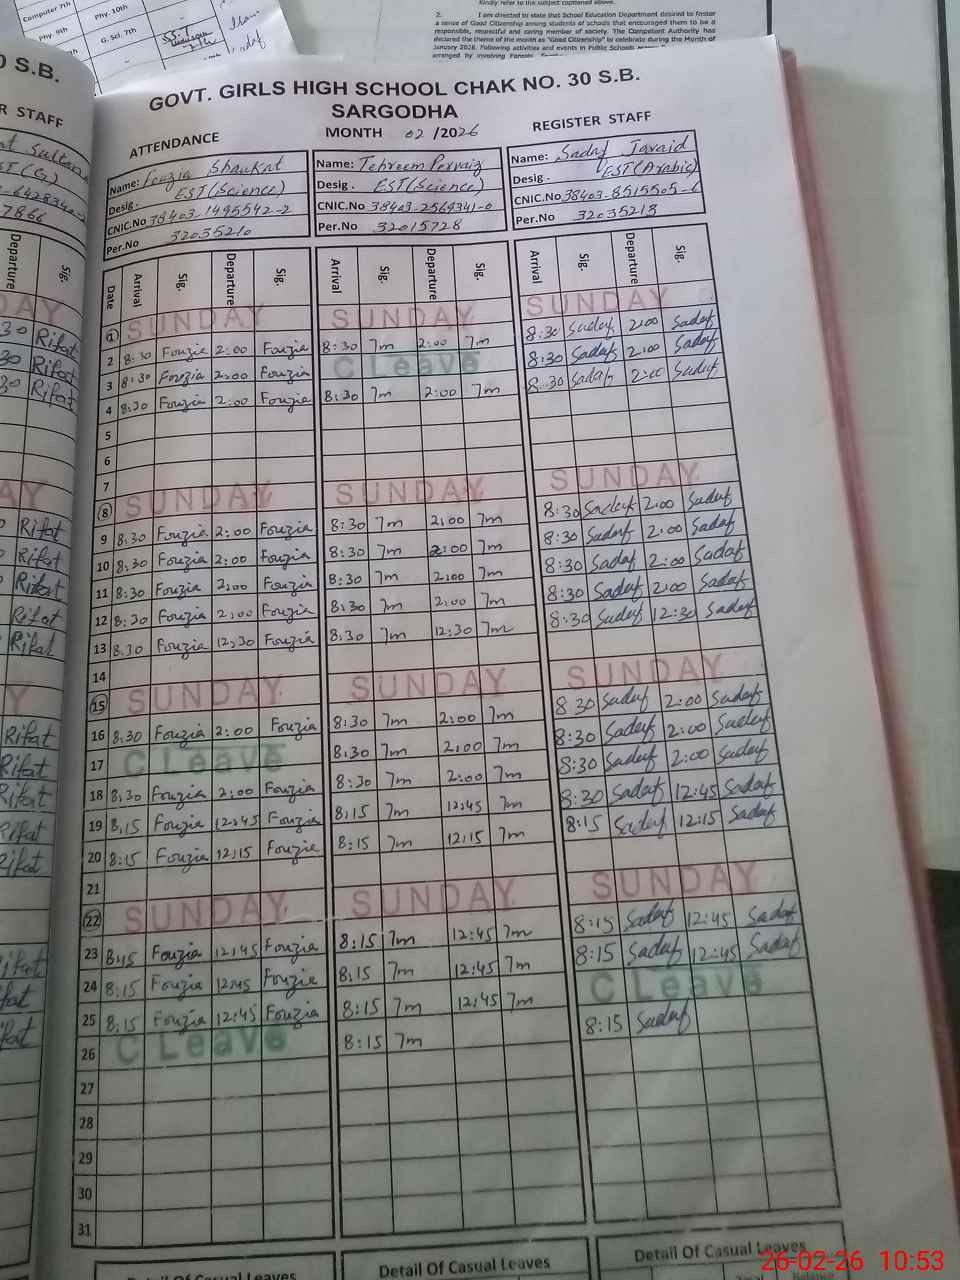 Computer 7th
Phy. 10th
Phy. 9th
G. Sci. 7th
Kindly refer to the subject captioned above.
2. I am directed to state that School Education Department desired to foster
a sense of Good Citizenship among students of schools that encouraged them to be a
responsible, respectful and caring member of society. The Competent Authority has
declared the theme of the month as "Good Citizenship" to celebrate during the Month of
January 2026. Following activities and events in Public Schools
arranged by involving Parents
GOVT. GIRLS HIGH SCHOOL CHAK NO. 30 S.B.
SARGODHA
ATTENDANCE MONTH 02 /2026 REGISTER STAFF
Name: Fouzia Shaukat Name: Tehreem Pervaiz Name: Sadaf Javaid
Desig. EST(Science) Desig. EST(Science) Desig. EST(Arabic)
CNIC.No 38403-1495542-2 CNIC.No 38403-2569341-0 CNIC.No 38403-8515505-6
Per.No 32035210 Per.No 32015728 Per.No 32035213
Date Arrival Sig. Departure Sig. Arrival Sig. Departure Sig. Arrival Sig. Departure Sig.
1 SUNDAY SUNDAY SUNDAY
2 8:30 Fouzia 2:00 Fouzia 8:30 7m 2:00 7m 8:30 Sadaf 2:00 Sadaf
3 8:30 Fouzia 2:00 Fouzia C Leave 8:30 Sadaf 2:00 Sadaf
4 8:30 Fouzia 2:00 Fouzia 8:30 7m 2:00 7m 8:30 Sadaf 2:00 Sadaf
5
6
7
8 SUNDAY SUNDAY SUNDAY
9 8:30 Fouzia 2:00 Fouzia 8:30 7m 2:00 7m 8:30 Sadaf 2:00 Sadaf
10 8:30 Fouzia 2:00 Fouzia 8:30 7m 2:00 7m 8:30 Sadaf 2:00 Sadaf
11 8:30 Fouzia 2:00 Fouzia 8:30 7m 2:00 7m 8:30 Sadaf 2:00 Sadaf
12 8:30 Fouzia 2:00 Fouzia 8:30 7m 2:00 7m 8:30 Sadaf 2:00 Sadaf
13 8:30 Fouzia 12:30 Fouzia 8:30 7m 12:30 7m 8:30 Sadaf 12:30 Sadaf
14
15 SUNDAY SUNDAY SUNDAY
16 8:30 Fouzia 2:00 Fouzia 8:30 7m 2:00 7m 8:30 Sadaf 2:00 Sadaf
17 C Leave 8:30 7m 2:00 7m 8:30 Sadaf 2:00 Sadaf
18 8:30 Fouzia 2:00 Fouzia 8:30 7m 2:00 7m 8:30 Sadaf 2:00 Sadaf
19 8:15 Fouzia 12:45 Fouzia 8:15 7m 12:45 7m 8:30 Sadaf 12:45 Sadaf
20 8:15 Fouzia 12:15 Fouzia 8:15 7m 12:15 7m 8:15 Sadaf 12:15 Sadaf
21
22 SUNDAY SUNDAY SUNDAY
23 8:15 Fouzia 12:45 Fouzia 8:15 7m 12:45 7m 8:15 Sadaf 12:45 Sadaf
24 8:15 Fouzia 12:45 Fouzia 8:15 7m 12:45 7m 8:15 Sadaf 12:45 Sadaf
25 8:15 Fouzia 12:45 Fouzia 8:15 7m 12:45 7m C Leave
26 C Leave 8:15 7m 8:15 Sadaf
27
28
29
30
31
Detail Of Casual Leaves Detail Of Casual Leaves Detail Of Casual Leaves
26-02-26 10:53